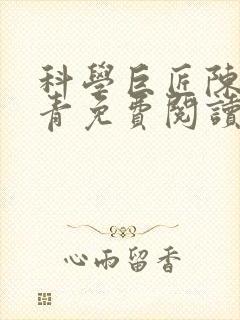 科學巨匠陳
青免費閱讀
心雨留香